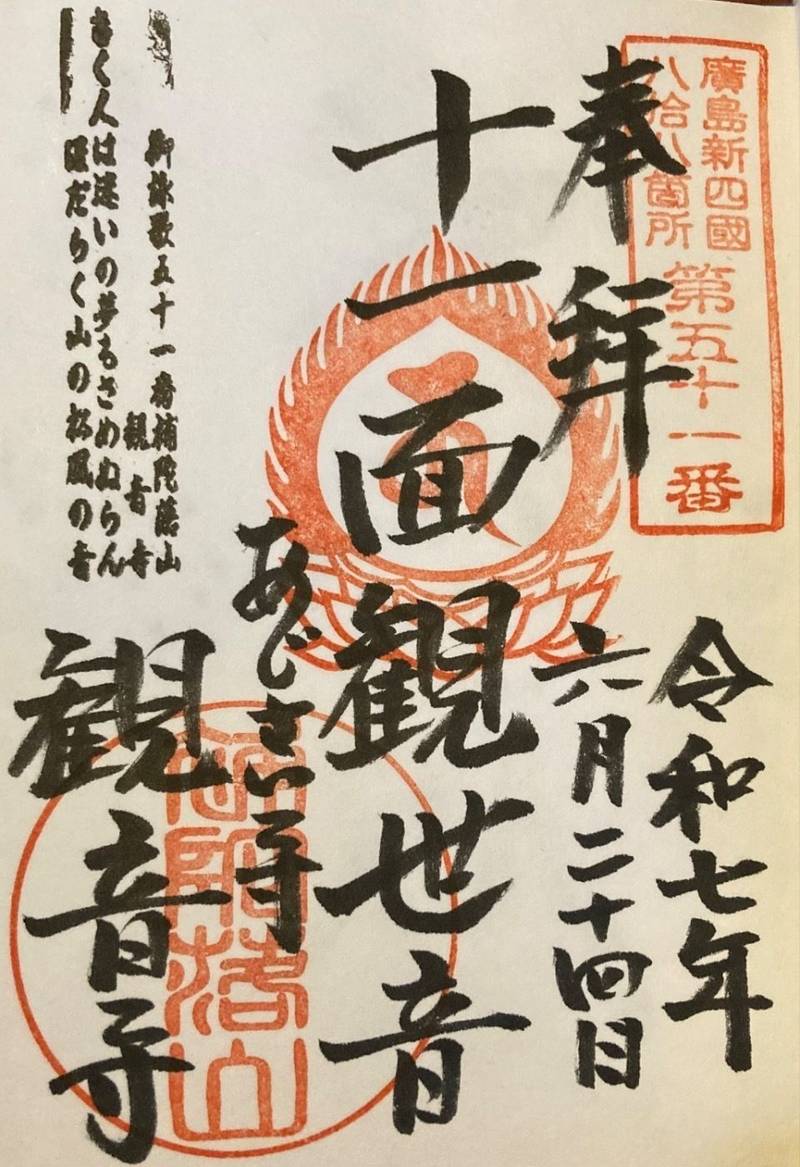 廣島新四國
八拾八箇所
第五十一番
奉拝
令和七年
六月二十四日
十一面觀世音
あじさい寺
観音寺
補陀落山
御詠歌五十一番補陀落山
観音寺
きく人は迷いの夢もさめぬらん
ほだらく山の松風の音